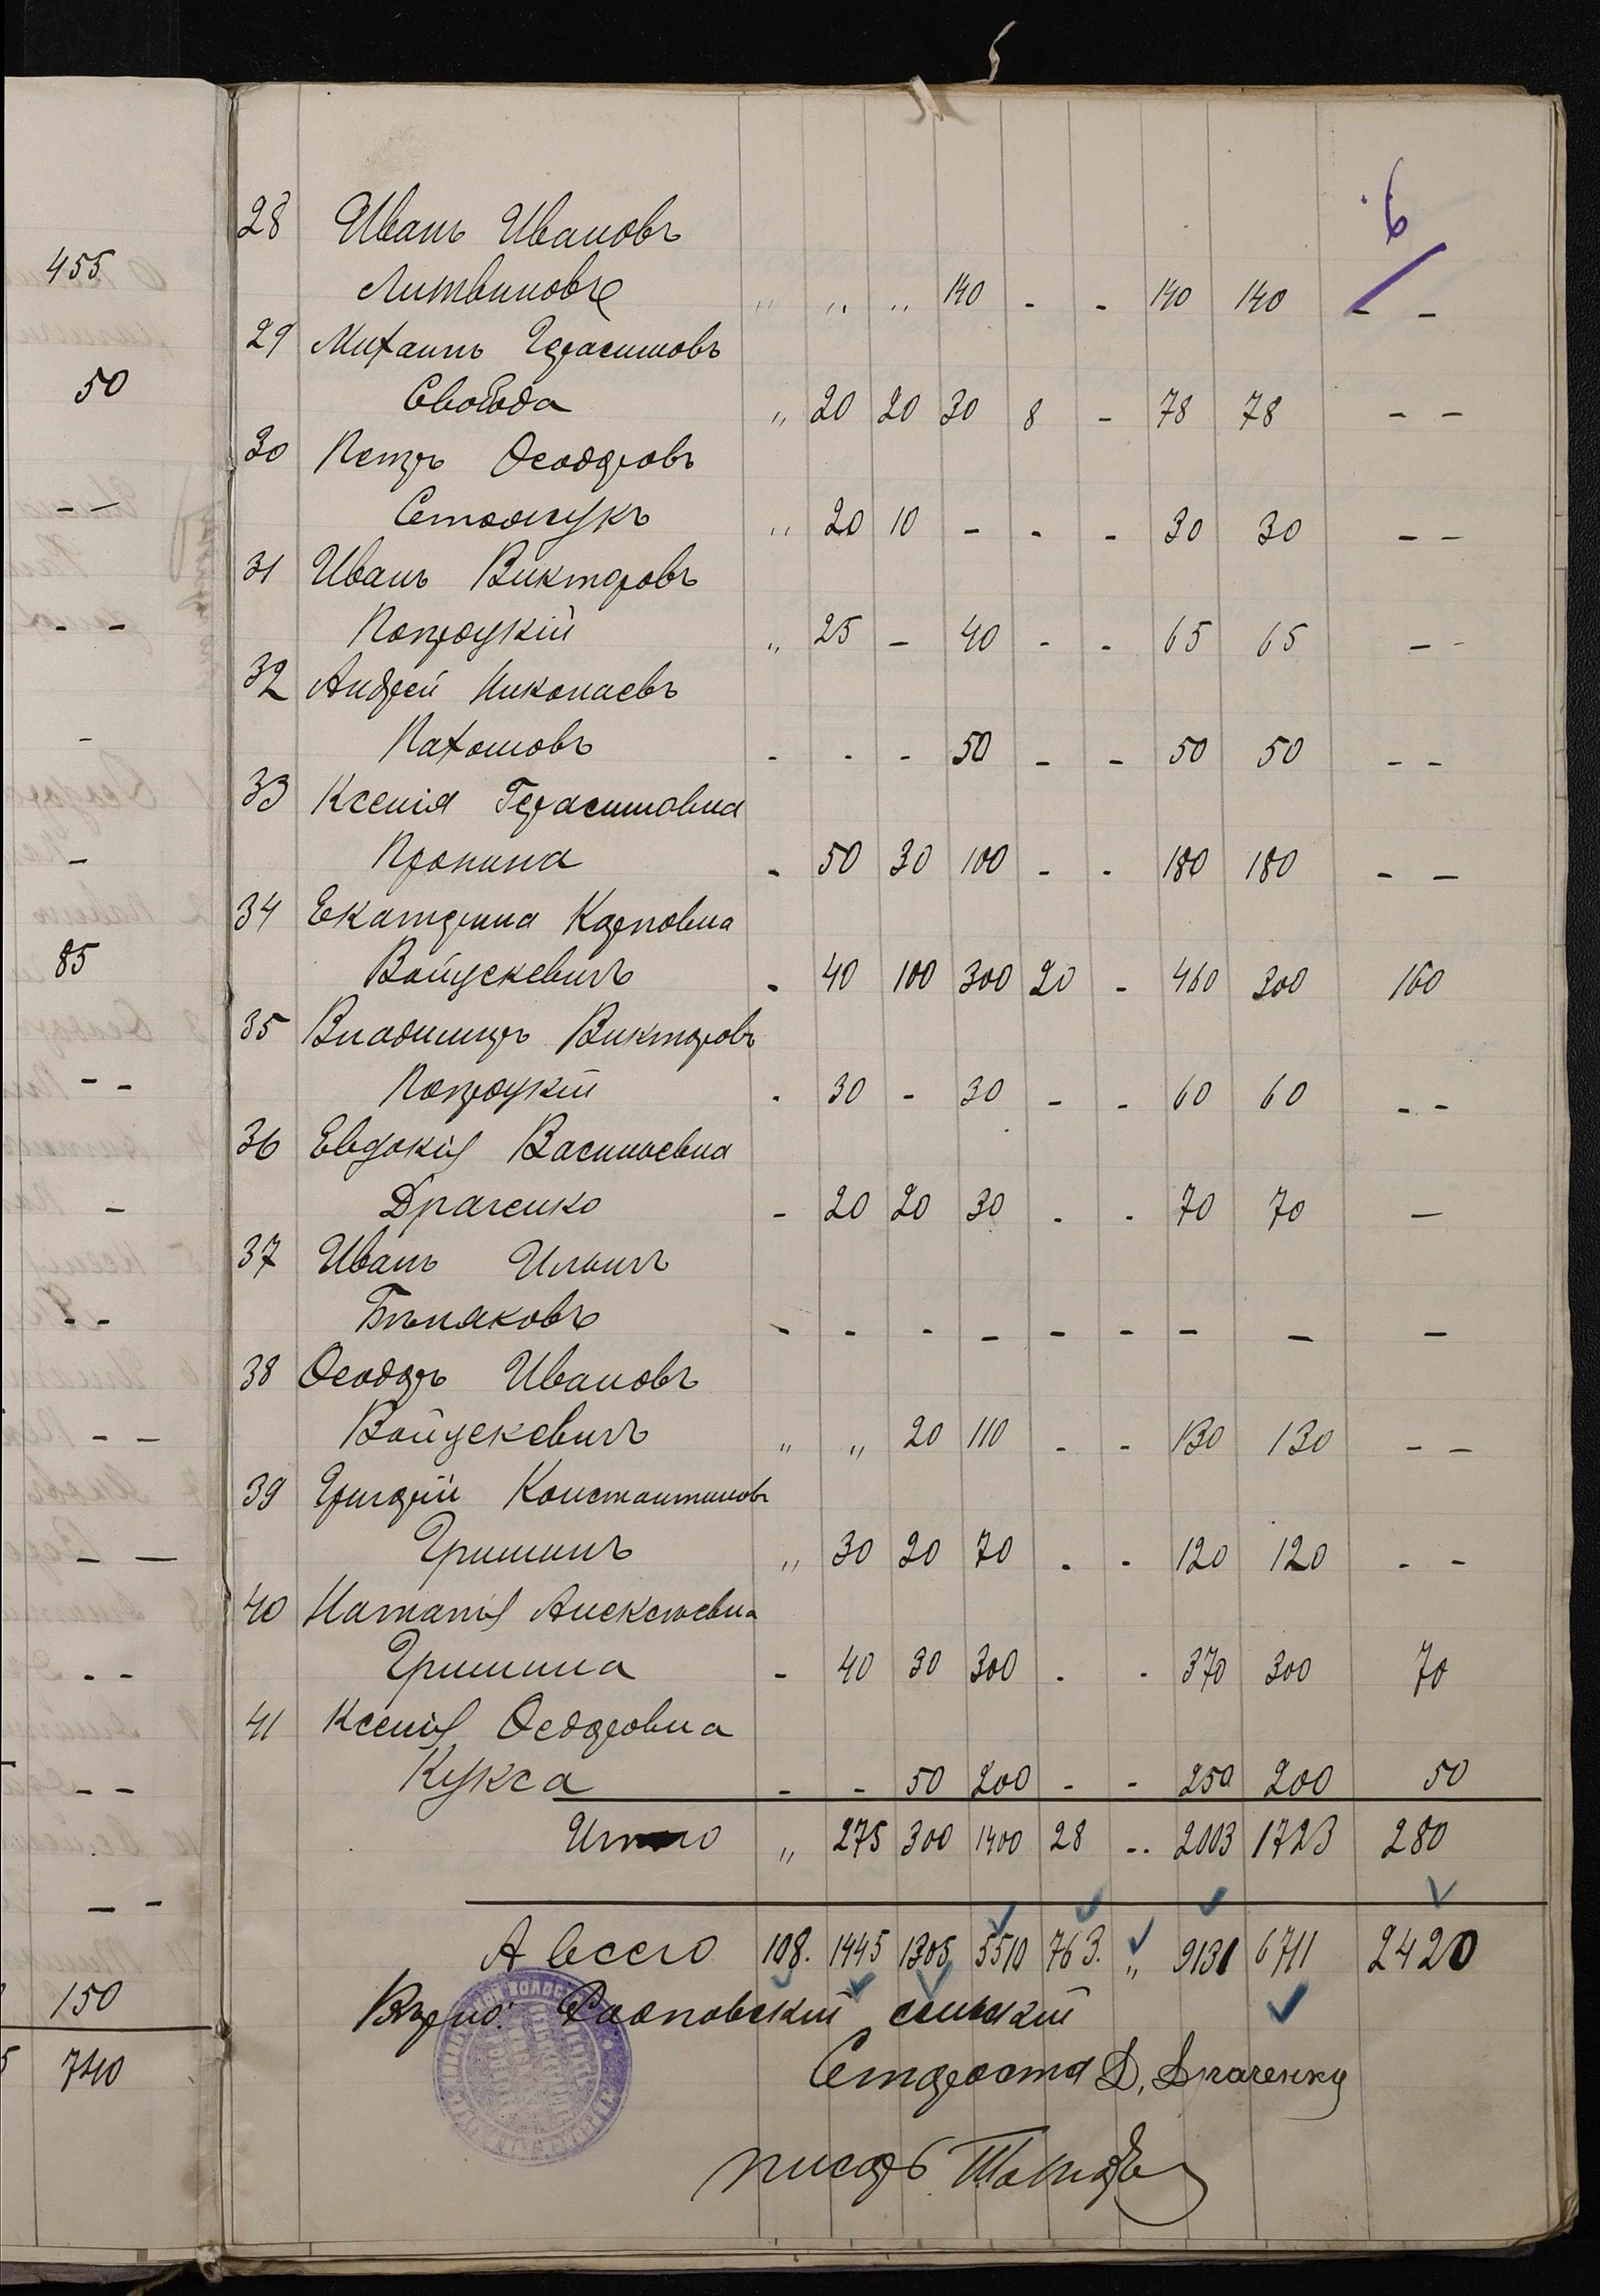 6
28 Иванъ Ивановъ
Литвиновъ „ „ „ 140 - - 140 140 - -
29 Михаилъ Герасимовъ
Свобода „ 20 20 30 8 - 78 78 - -
30 Петръ Ѳеодоровъ
Стоочукъ „ 20 10 - - - 30 30 - -
31 Иванъ Викторовъ
Потроцкій „ 25 - 40 - - 65 65 - -
32 Андрей Николаевъ
Пахомовъ - - - 50 - - 50 50 - -
33 Ксенія Герасимовна
Пронина - 50 30 100 - - 180 180 - -
34 Екатерина Карповна
Войцеховичъ - 40 100 300 20 - 460 300 160
35 Владимиръ Викторовъ
Потроцкій - 30 - 30 - - 60 60 - -
36 Евдокія Васильевна
Драченко - 20 20 30 - - 70 70 -
37 Иванъ Ильичъ
Бѣляковъ - - - - - - - - -
38 Ѳеодоръ Ивановъ
Войцескевичъ „ „ 20 110 - - 130 130 - -
39 Григорій Константиновъ
Гришинъ „ 30 20 70 - - 120 120 - -
40 Наталія Алексѣевна
Гришина - 40 30 300 - - 370 300 70
41 Ксенія Ѳедоровна
Кукса - - 50 200 - - 250 200 50
Итого „ 275 300 1400 28 - 2003 1723 280
А всего 108. 1445 1305 5510 763. „ 9131 6711 2420
Вѣрно: сельскій
Староста Д. Драченко
писарь
455
50
- -
- -
-
-
85
- -
-
- -
- -
- -
- -
- -
- -
150
740